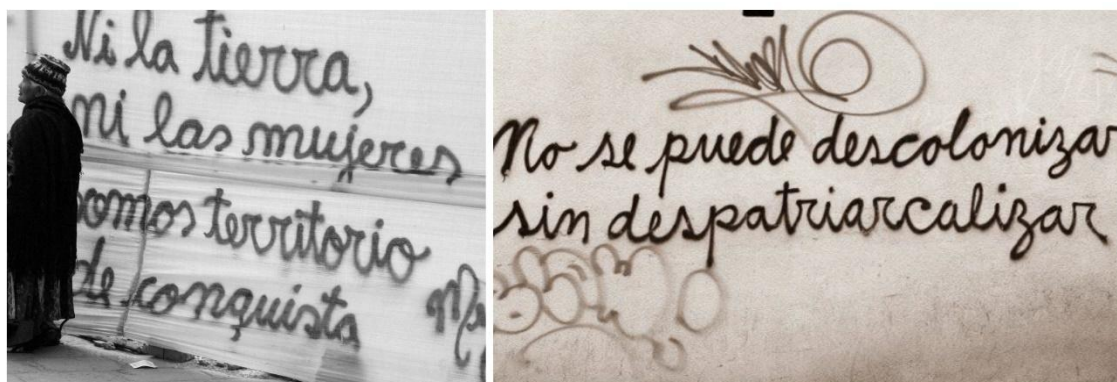 Ni la tierra,
ni las mujeres
somos territorio
de conquista
No se puede descoloniza
sin despatriarcalizar